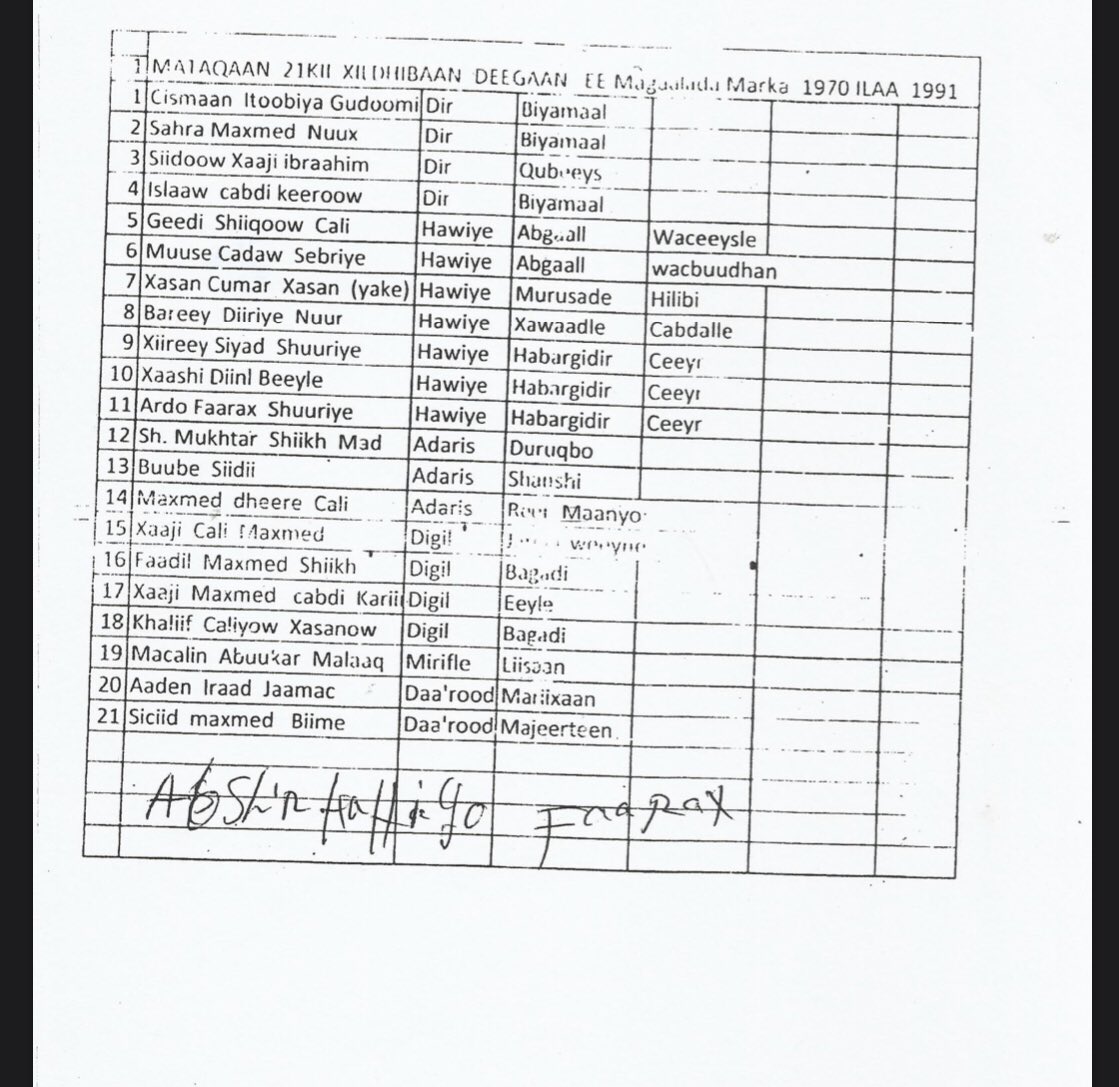 1 MATAQAAN 21KII XILDHIBAAN DEEGAAN EE Magaalada Marka 1970 ILAA 1991
1 Cismaan Itoobiya Gudoomi Dir Biyamaal
2 Sahra Maxmed Nuux Dir Biyamaal
3 Siidoow Xaaji ibraahim Dir Qubeeys
4 Islaaw cabdi keeroow Dir Biyamaal
5 Geedi Shiiqoow Cali Hawiye Abgaall Waceeysle
6 Muuse Cadaw Sebriye Hawiye Abgaall wacbuudhan
7 Xasan Cumar Xasan (yake) Hawiye Murusade Hilibi
8 Bareey Diiriye Nuur Hawiye Xawaadle Cabdalle
9 Xiireey Siyad Shuuriye Hawiye Habargidir Ceeyr
10 Xaashi Diinl Beeyle Hawiye Habargidir Ceeyr
11 Ardo Faarax Shuuriye Hawiye Habargidir Ceeyr
12 Sh. Mukhtar Shiikh Mad Adaris Duruqbo
13 Buube Siidii Adaris Shanshi
14 Maxmed dheere Cali Adaris Reer Maanyo
15 Xaaji Cali Maxmed Digil weeyne
16 Faadil Maxmed Shiikh Digil Bagadi
17 Xaaji Maxmed cabdi Kariii Digil Eeyle
18 Khaliif Caliyow Xasanow Digil Bagadi
19 Macalin Abuukar Malaaq Mirifle Liisaan
20 Aaden Iraad Jaamac Daa'rood Mariixaan
21 Siciid maxmed Biime Daa'rood Majeerteen
FaaRaX